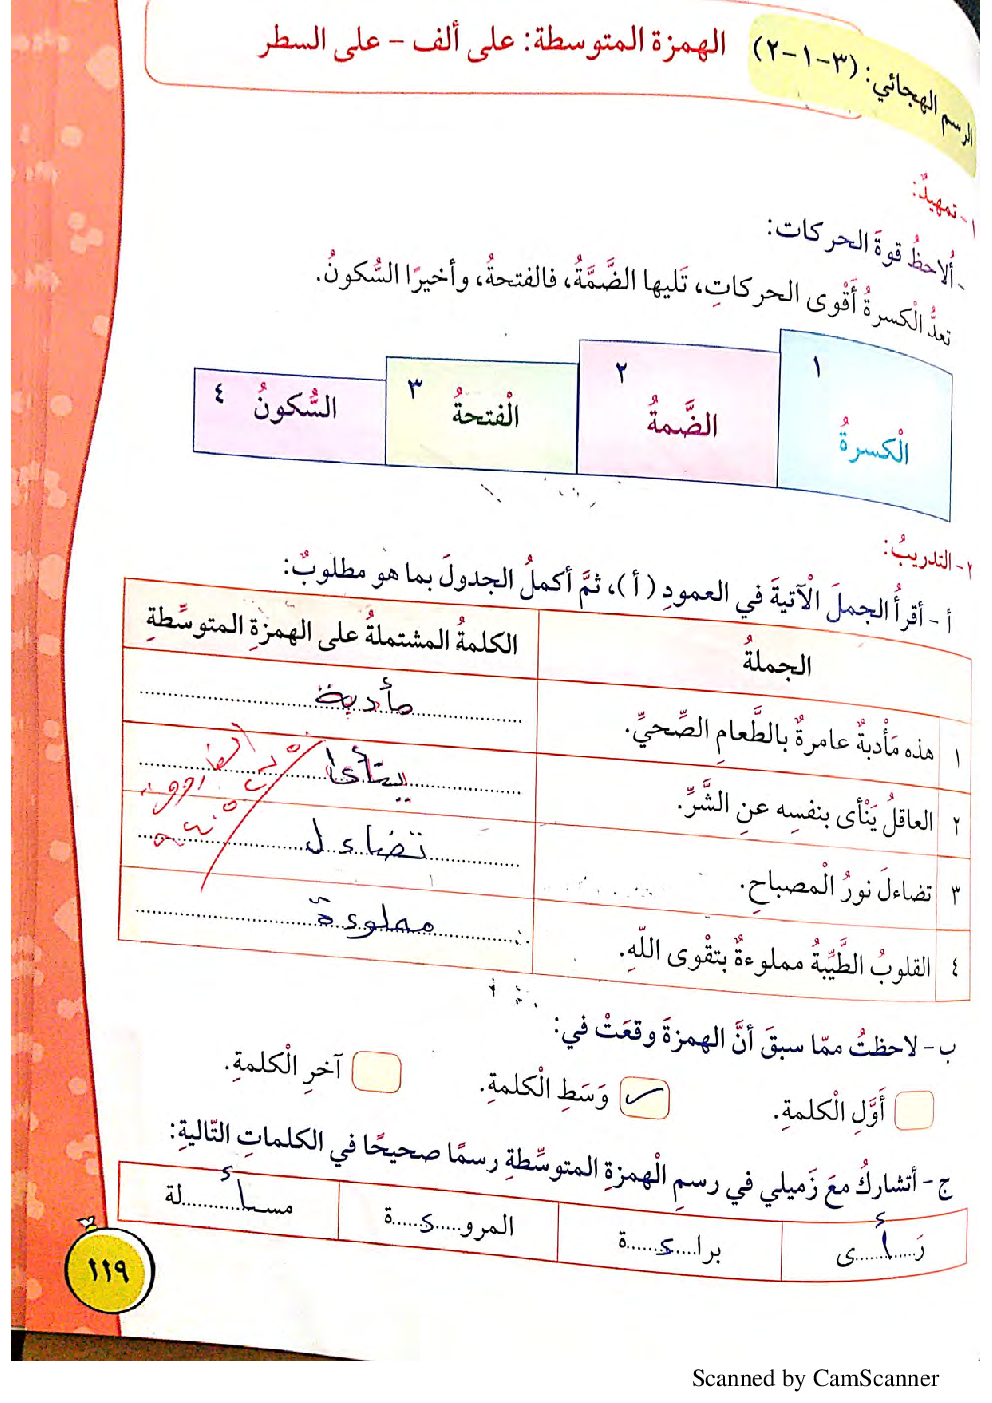 الرسم الهجائي: (٣-١-٢) الهمزة المتوسطة: على ألف - على السطر
١- تمهيدٌ:
- أُلاحظُ قوةَ الحركات:
تعدُّ الْكسرةُ أَقْوى الحركاتِ، تَليها الضَّمَّةُ، فالفتحةُ، وأخيرًا السُّكونُ.
١ الْكسرةُ
٢ الضَّمةُ
٣ الْفتحةُ
٤ السُّكونُ
٢- التدريبُ:
أ - أقرأُ الجملَ الْآتيةَ في العمودِ (أ)، ثمَّ أكملُ الجدولَ بما هو مطلوبٌ:
الجملةُ الكلمةُ المشتملةُ على الهمزةِ المتوسِّطةِ
١ هذه مَأْدبةٌ عامرةٌ بالطَّعامِ الصِّحيِّ. مأدبة
٢ العاقلُ يَنْأى بنفسِه عنِ الشَّرِّ. ينأى
٣ تضاءلَ نورُ الْمصباحِ. تضاءل
٤ القلوبُ الطَّيِّبةُ مملوءةٌ بتقْوى اللّهِ. مملوءة
ب - لاحظتُ ممّا سبقَ أنَّ الهمزةَ وقعَتْ في:
أَوَّلِ الْكلمةِ. وَسَطِ الْكلمةِ. آخرِ الْكلمةِ.
ج - أتشاركُ معَ زَميلي في رسمِ الْهمزةِ المتوسِّطةِ رسمًا صحيحًا في الكلماتِ التّاليةِ:
رَ...أ...ى برا...ء...ة المرو...ء...ة مسـ...أ...لة
١١٩
Scanned by CamScanner